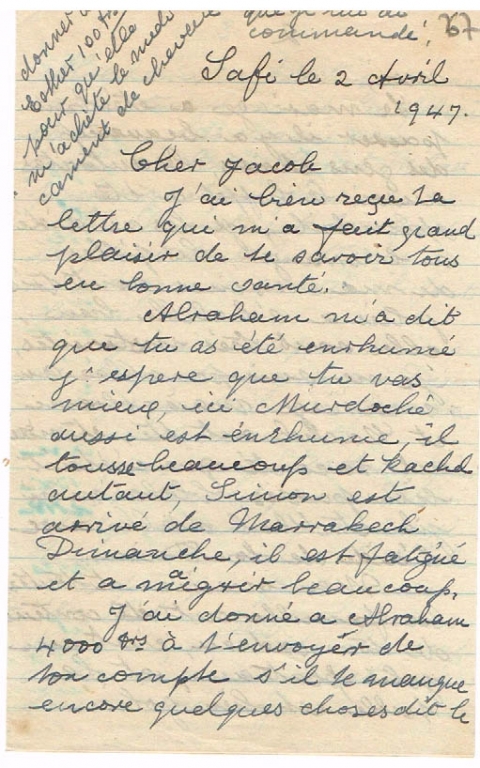 donner à
Esther 100 frs
pour qu'elle
m'achète le médi
cament de cheveux
que je lui ai
commandé.
67
Safi le 2 Avril
1947.
Cher Jacob
J'ai bien reçue ta
lettre qui m'a fait grand
plaisir de te savoir tous
en bonne santé.
Abraham m'a dit
que tu as été enrhumé
j'espere que tu vas
mieux, ici Murdoché
aussi est énrhume, il
tousse beaucoup et
autant, Simon est
arrivé de Marrakech
Dimanche, il est fatigué
et a maigrir beaucoup.
J'ai donné a Abraham
4000 frs à t'envoyér de
ton compte s'il te manque
encore quelques choses dit le